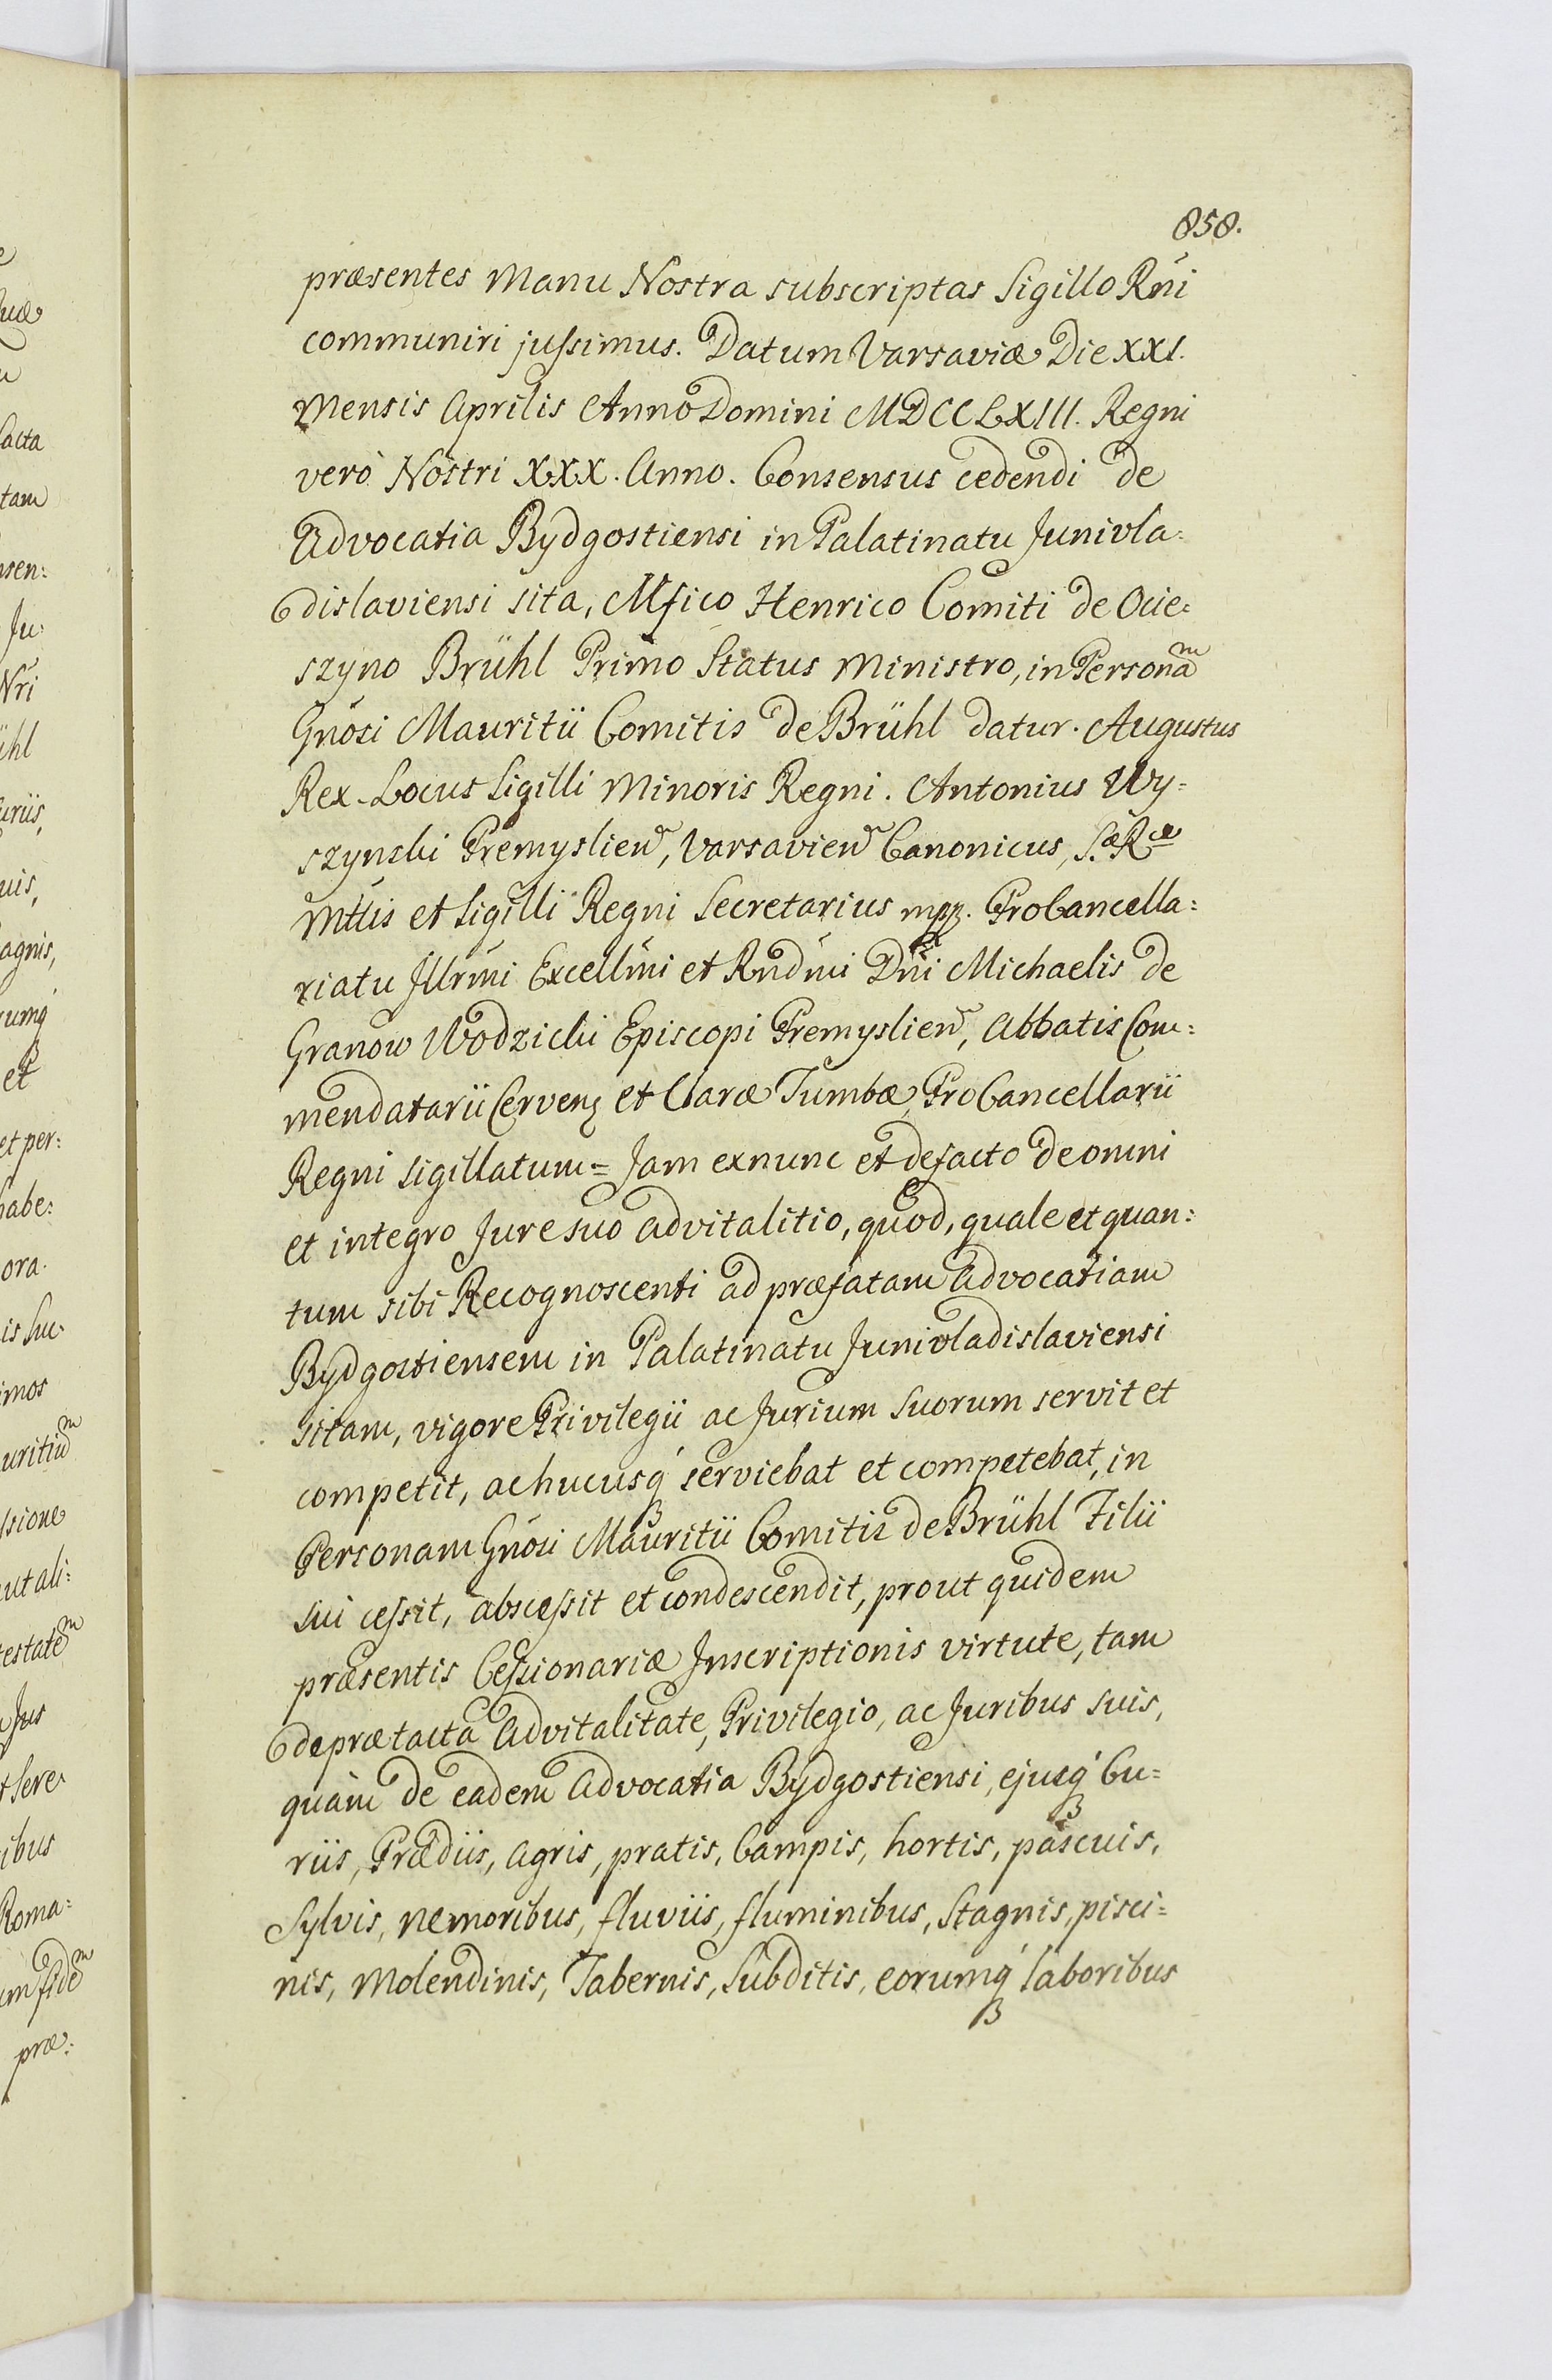 858.
præsentes Manu Nostra subscriptas Sigillo Rńi
communiri jussimus. Datum Varsaviæ Die XXI.
Mensis Aprilis Anno Domini MDCCLXIII. Regni
verò Nostri XXX. Anno. Consensus cedendi de
Advocatia Bydgostiensi in Palatinatu Junivla:
dislaviensi sita, Mfico Henrico Comiti de Ocie:
szyno Brühl Primo Status Ministro, in Personaᵐ
Gńosi Mauritii Comitis de Brühl datur. Augustus
Rex. Locus Sigilli Minoris Regni. Antonius Wy=
szynski Premyslien̄, Varsavien̄ Canonicus, S.æ Ræ
Mttis et Sigilli Regni Secretarius mpp. ProCancella:
riatu Jllrmi Excellmi et Rndmi Dńi Michaelis de
Granow Wodzicki Episcopi Premyslien̄, Abbatis Com:
mendatarii Cerveń et Claræ Tumbæ, ProCancellarii
Regni sigillatum = Jam ex nunc et defacto de omni
et integro Jure suo advitalitio, quod, quale et quan:
tum sibi Recognoscenti ad præfatam Advocatiam
Bydgostiensem in Palatinatu Junivladislaviensi
sitam, vigore Privilegii ac Jurium suorum servit et
competit, ac hucusq́ serviebat et competebat, in
Personam Gńosi Mauritii Comitis de Brühl Filii
sui cessit, abscessit et condescendit, prout quidem
præsentis Cessionariæ Jnscriptionis virtute, tam
de prætacta Advitalitate, Privilegio, ac Juribus suis,
quàm de eadem Advocatia Bydgostiensi, ejusq́ Cu=
riis, Prædiis, agris, pratis, Campis, hortis, pascuis,
Sylvis, nemoribus, fluviis, fluminibus, Stagnis, pisci=
nis, Molendinis, Tabernis, Subditis, eorumq́ laboribus